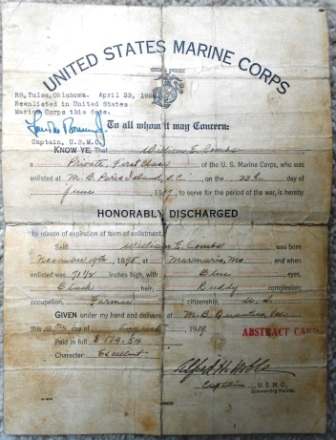 UNITED STATES MARINE CORPS
RS, Tulsa, Oklahoma. April 23,
Reenlisted in United States
Marine Corps this date.
Captain, U.S.M.C.
To all whom it may Concern:
KNOW YE, That William E. Combs
a Private, First Class of the U. S. Marine Corps, who was
enlisted at M. B. Paris Island, S.C. on the day of
June to serve for the period of the war, is hereby
HONORABLY DISCHARGED
by reason of expiration of term of enlistment.
Said William E. Combs was born
at Mo and when
enlisted was 71½ inches high, with Blue eyes,
Black hair, Ruddy complexion;
occupation, Farmer citizenship, U. S.
GIVEN under my hand and delivered at M.B. Quantico, Va.
this day of August 1919
ABSTRACT CARD
Paid in full $
Character Excellent
Captain U.S.M.C.
Commanding Marines.